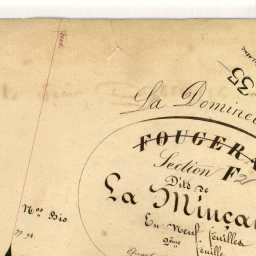 35
La Domine
FOUGERA
Section F
Dite de
La Minça
En Neuf feuilles
2ème feuille
Nos Bis